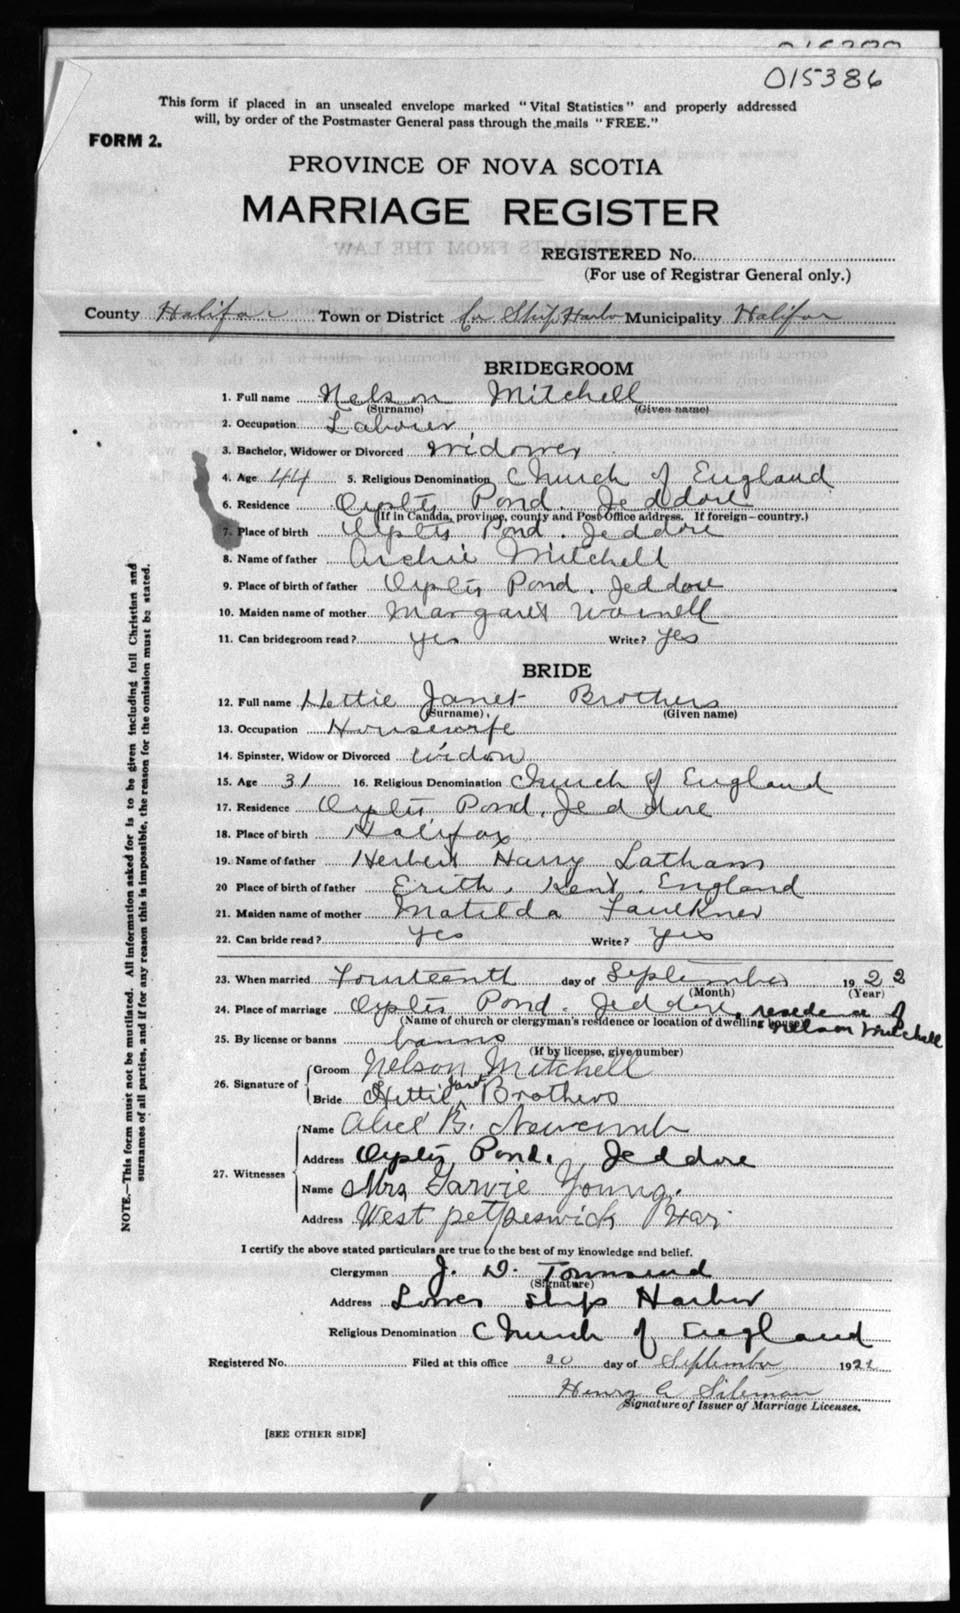 015386
This form if placed in an unsealed envelope marked "Vital Statistics" and properly addressed
will, by order of the Postmaster General pass through the mails "FREE."
FORM 2.
PROVINCE OF NOVA SCOTIA
MARRIAGE REGISTER
REGISTERED No.
(For use of Registrar General only.)
County Halifax Town or District Ship Harbor Municipality Halifax
BRIDEGROOM
1. Full name Nelson Mitchell
(Surname) (Given name)
2. Occupation Laborer
3. Bachelor, Widower or Divorced Widower
4. Age 44 5. Religious Denomination Church of England
6. Residence Oyster Pond. Jeddore
(If in Canada, province, county and Post-Office address. If foreign—country.)
7. Place of birth Oyster Pond. Jeddore
8. Name of father Archie Mitchell
9. Place of birth of father Oyster Pond. Jeddore
10. Maiden name of mother Margaret Warnell
11. Can bridegroom read? yes Write? yes
BRIDE
12. Full name Hettie Janet Brothers
(Surname) (Given name)
13. Occupation Housewife
14. Spinster, Widow or Divorced widow
15. Age 31 16. Religious Denomination Church of England
17. Residence Oyster Pond, Jeddore
18. Place of birth Halifax
19. Name of father Herbert Harry Latham
20 Place of birth of father Erith, Kent. England
21. Maiden name of mother Matilda Faulkner
22. Can bride read? yes Write? yes
23. When married Fourteenth day of September 1922
(Month) (Year)
24. Place of marriage Oyster Pond. Jeddore, residence of
Nelson Mitchell
(Name of church or clergyman's residence or location of dwelling house)
25. By license or banns banns
(If by license, give number)
26. Signature of Groom Nelson Mitchell
Bride Hettie Janet Brothers
27. Witnesses Name Alice B. Newcomb
Address Oyster Pond. Jeddore
Name Mrs Garvie Young.
Address West petpeswick Hax
I certify the above stated particulars are true to the best of my knowledge and belief.
Clergyman J. D. Townsend
(Signature)
Address Lower Ship Harbor
Religious Denomination Church of England
Registered No. Filed at this office 20 day of September 1922
Henry
Signature of Issuer of Marriage Licenses.
[SEE OTHER SIDE]
NOTE.—This form must not be mutilated. All information asked for is to be given including full Christian and
surnames of all parties, and if for any reason this is impossible, the reason for the omission must be stated.